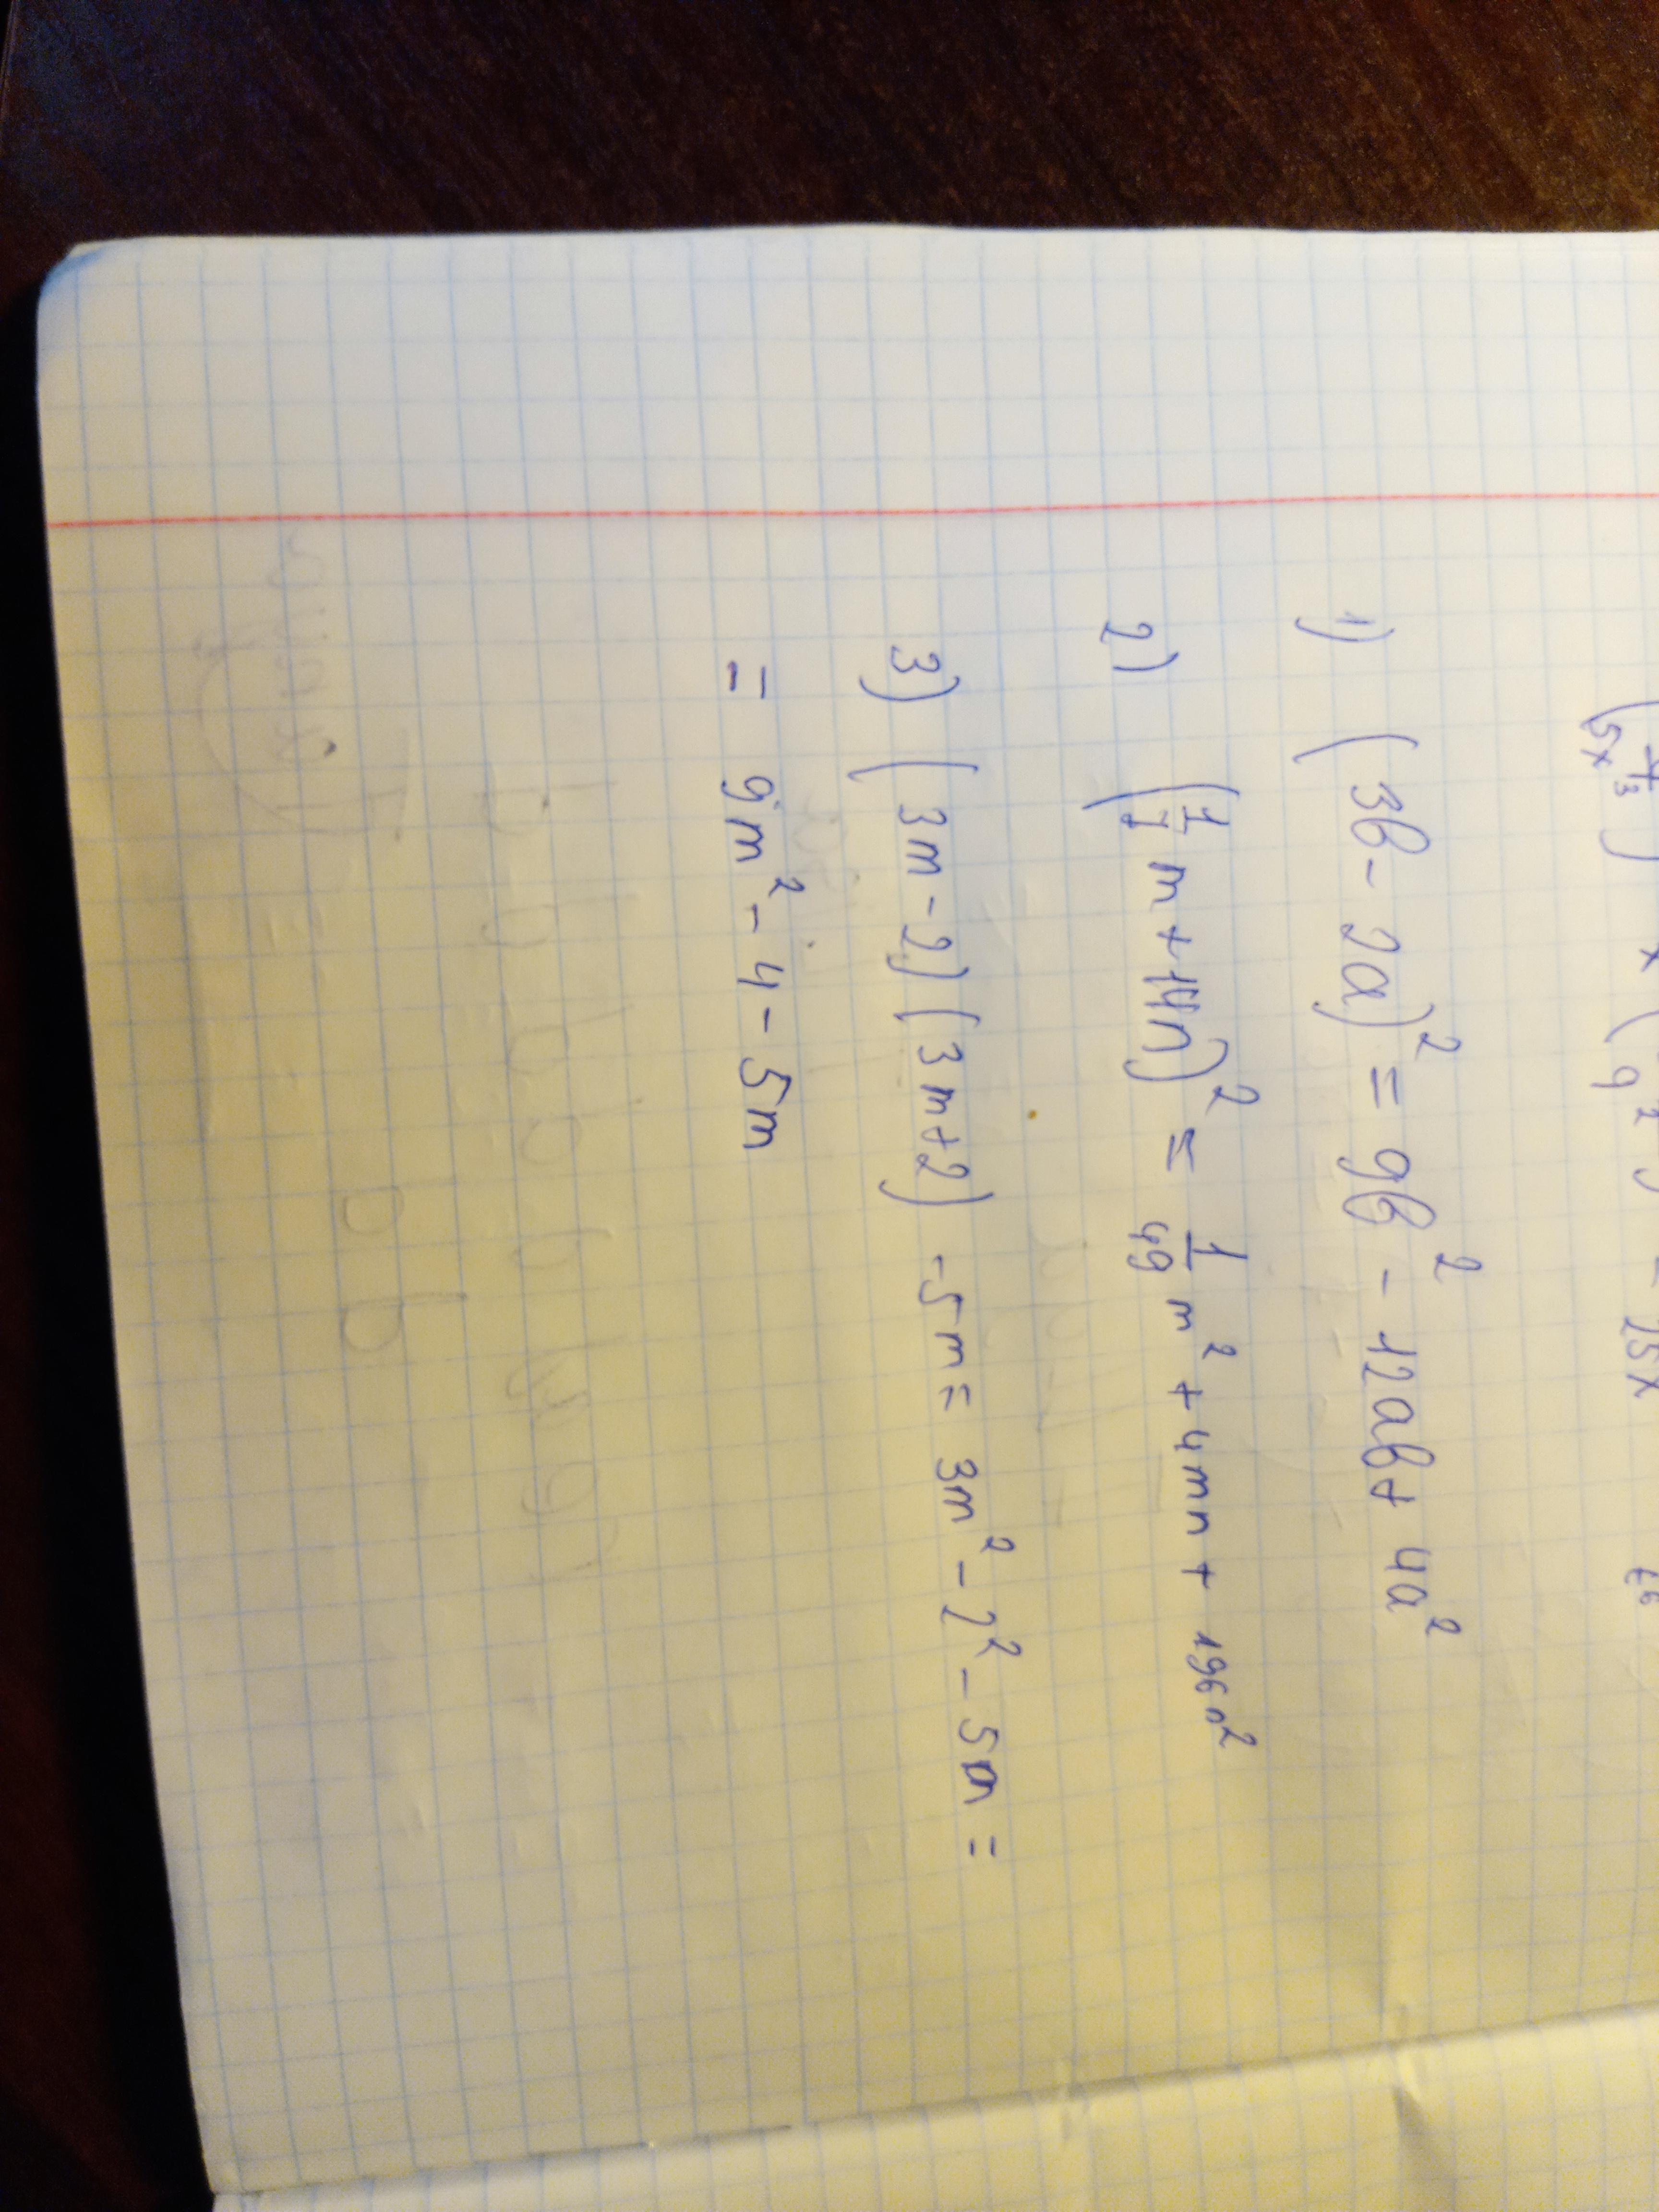 1) (3b - 2a)² = 9b² - 12ab + 4a²
2) (1/7 m + 14n)² = 1/49 m² + 4mn + 196n²
3) (3m - 2)(3m + 2) - 5m = 3m² - 2² - 5m =
= 9m² - 4 - 5m